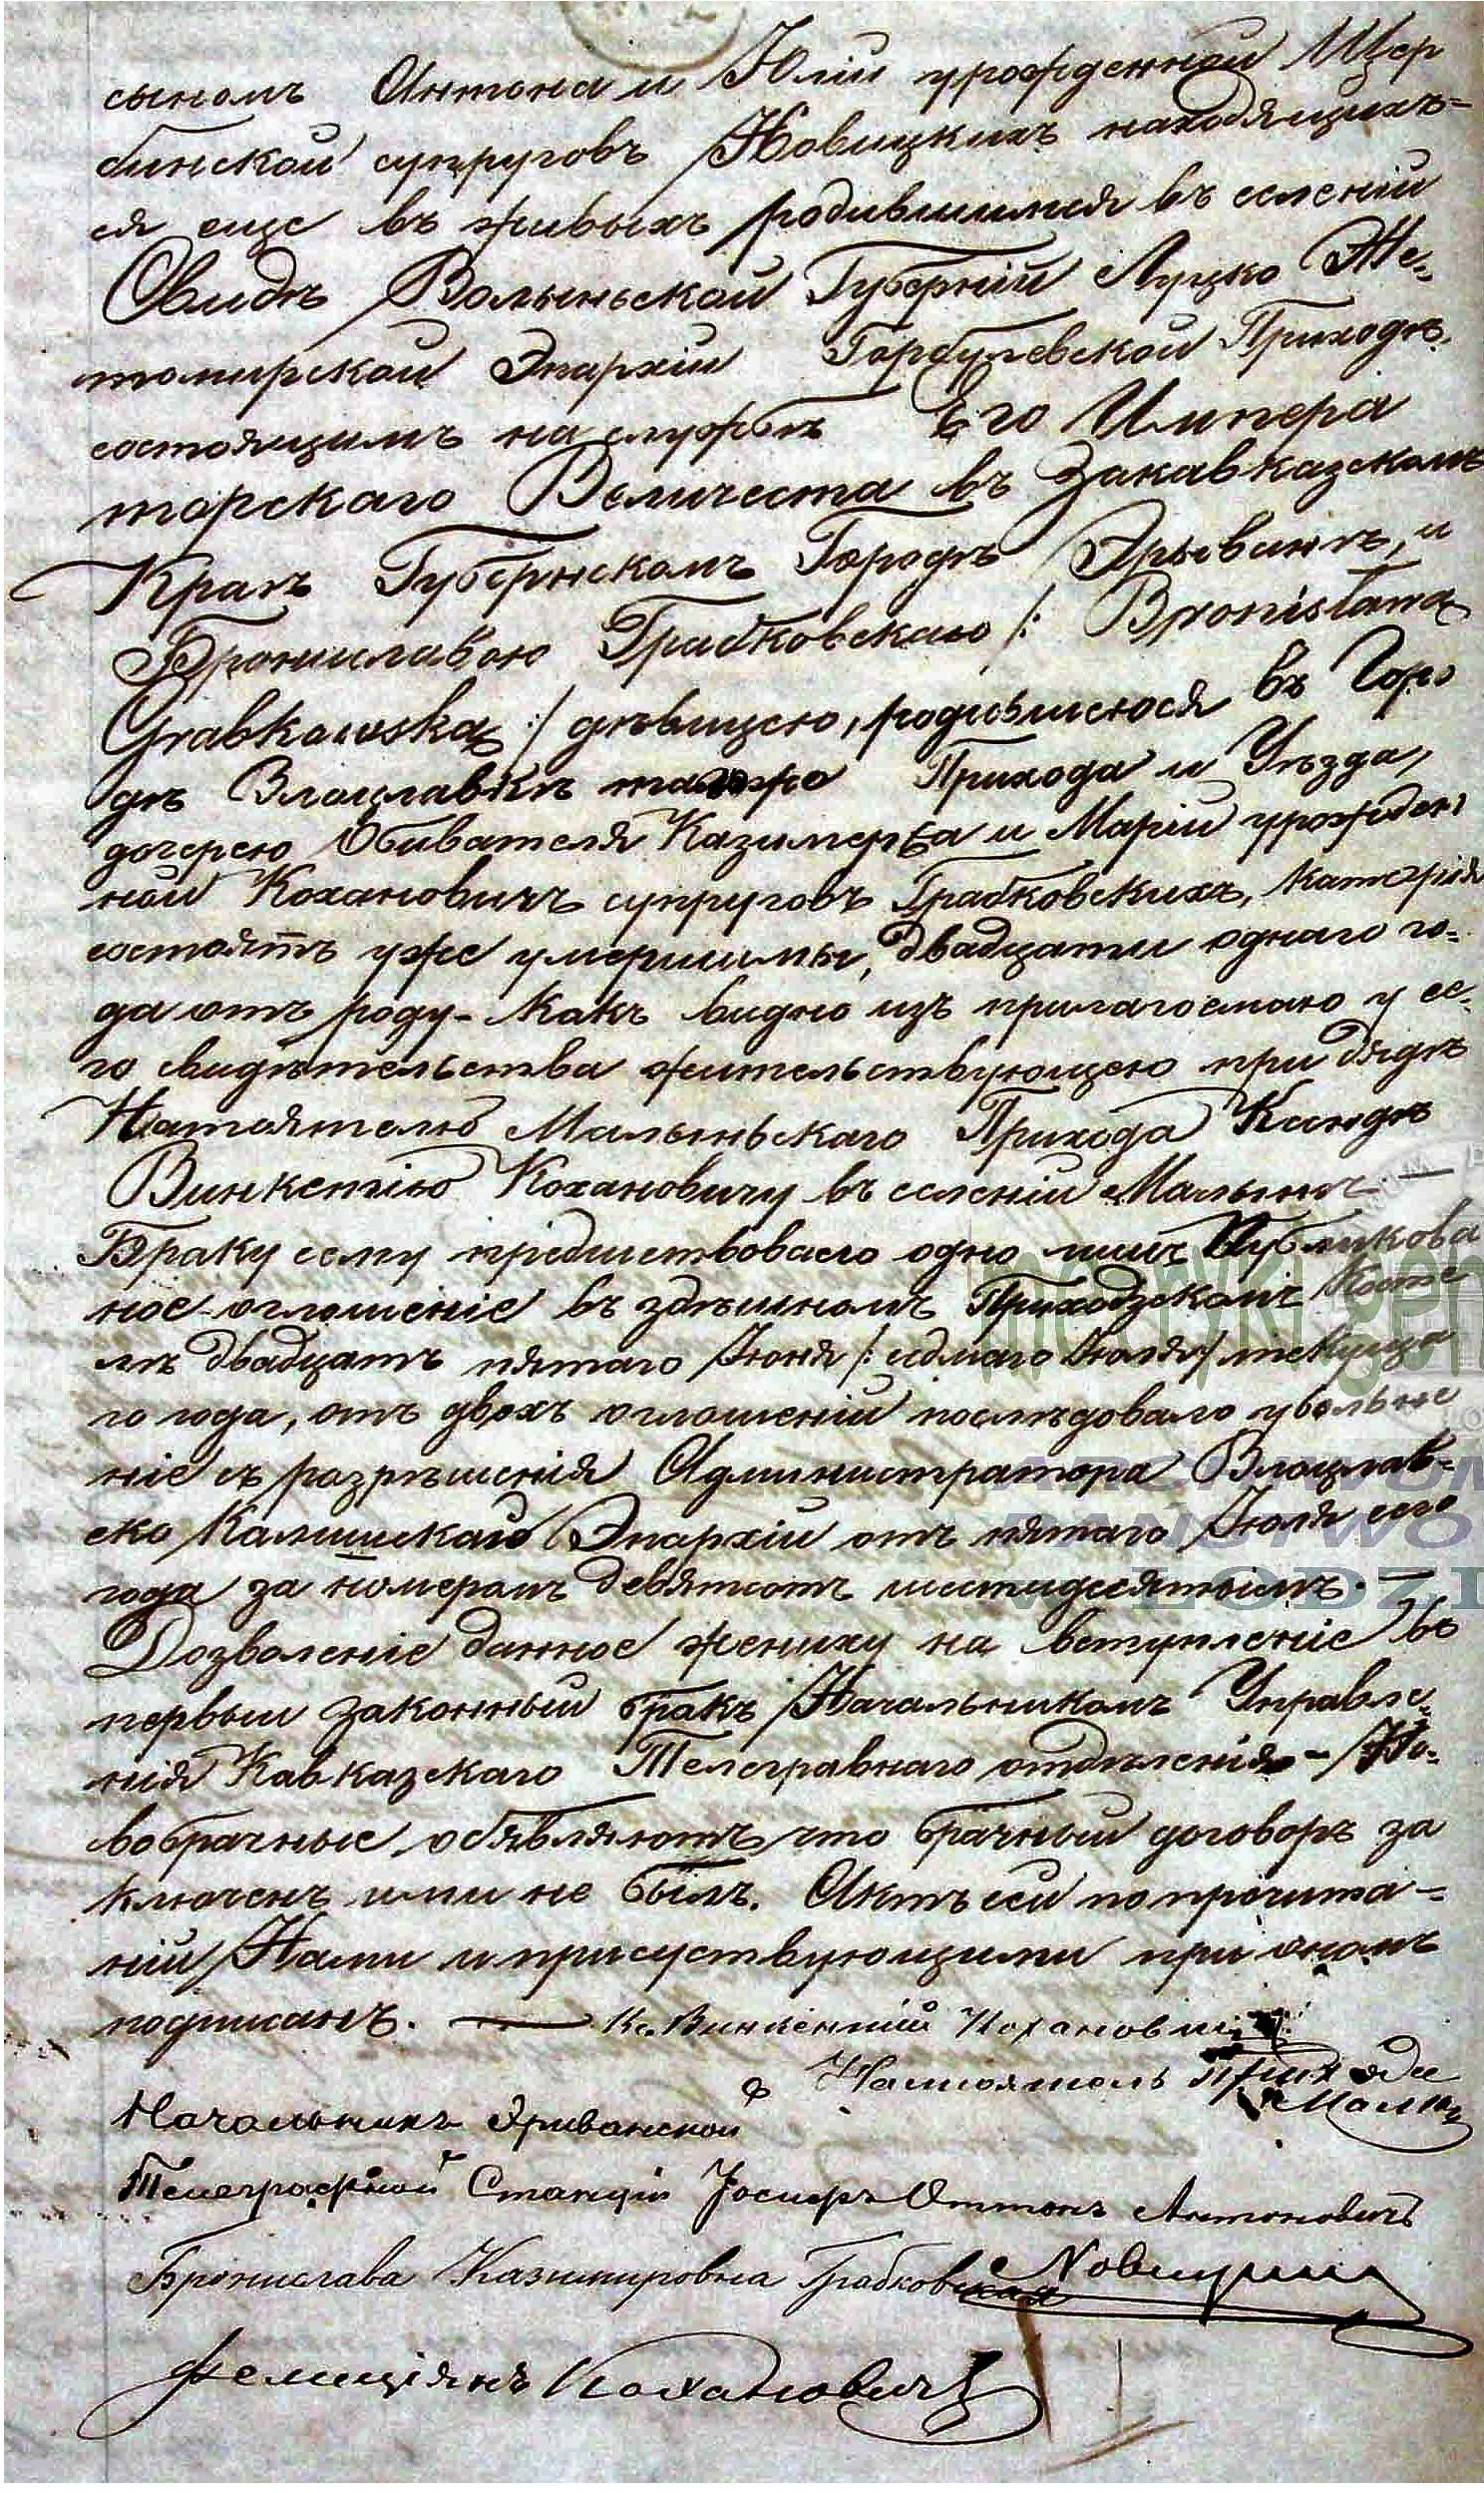 сыномъ Антона и Юліи урожденной Щер
бинской супруговъ Новицкихъ находящих=
ся еще въ живыхъ родившимся въ селеніи
Овидъ Волыньской Губерніи Луцко Жи=
томирской Эпархіи Горбулевской Приходъ,
состоящимъ на службѣ Его Импера
торскаго Величеста въ Закавказскомъ
Краѣ Губернскомъ Городѣ Эрывинѣ, и
Брониславою Грабковскаю /: Bronisława
Grabkowska :/ дѣвицею, родившеюся въ Горо
дѣ Влоцлавкѣ Прихода и Уѣзда,
дочерею Обывателя Казимерѣа и Маріи урожден
ной Кохановичъ супруговъ Грабковскихъ, каторія
состоятъ уже умершимы, двадцати однаго го=
да отъ роду - Какъ видно изъ прилагоемаю у се=
го свидѣтельства жительствующею при дядѣ
Настоятелю Малыньскаго Прихода Ксендѣ
Винкентію Кохановичу въ селеніи Малынѣ. —
Браку сему предшествовало одно лишъ Публикова
ное оглошеніе въ здѣшномъ Приходзкомъ Косте
лѣ двадцатъ пятаго Іюня /: седмаго Іюля :/ текуща
го года, отъ двохъ оглошеніи послѣдовало увольне
ніе съ разрѣшенія Администратора Влоцлав=
ско Калишскаго Эпархіи отъ пятаго Іюля сего
года за номеромъ девятсотъ шестидесятымъ. —
Дозволеніе данное жениху на вступленіе въ
первый законный бракъ Начальникомъ Управле=
нія Кавказскаго Телегравнаго отдѣленія - Но=
вобрачные объявляютъ что брачный договоръ за
ключенъ ими не былъ. Актъ сей по прочита=
ніи Нами и присуствующими при ономъ
подписанъ. — Кс. Винкентій Кохановичъ
Настоятель Прихода
Малынь
Начальникъ Эриванской
Телеграфной Станціи Іосифъ Оттонъ Антоновичъ
Новицкій
Бронислава Казимировна Грабковская
Фелиціянъ Кохановичъ